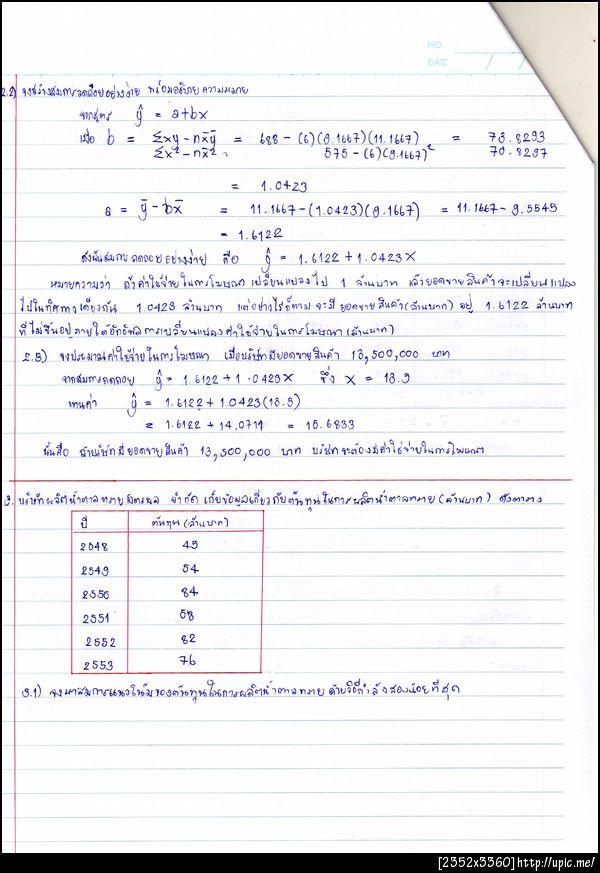 NO.
DATE / /
2.2) จงสร้างสมการถดถอยอย่างง่าย พร้อมอธิบายความหมาย
จากสูตร ŷ = a+bx
เมื่อ b = Σxy - nx̄ȳ = 688 - (6)(9.1667)(11.1667) = 73.8293
Σx² - nx̄² 575 - (6)(9.1667)² 70.8297
= 1.0423
a = ȳ - bx̄ = 11.1667 - (1.0423)(9.1667) = 11.1667 - 9.5545
= 1.6122
ดังนั้นสมการถดถอยอย่างง่าย คือ ŷ = 1.6122 + 1.0423X
หมายความว่า ถ้าค่าใช้จ่ายในการโฆษณา เปลี่ยนแปลงไป 1 ล้านบาท แล้วยอดขายสินค้าจะเปลี่ยนแปลง
ไปในทิศทางเดียวกัน 1.0423 ล้านบาท แต่อย่างไรก็ตาม จะมียอดขายสินค้า(ล้านบาท) อยู่ 1.6122 ล้านบาท
ที่ไม่ขึ้นอยู่ภายใต้อิทธิพลการเปลี่ยนแปลงค่าใช้จ่ายในการโฆษณา (ล้านบาท)
2.3) จงประมาณค่าใช้จ่ายในการโฆษณา เมื่อบริษัทมียอดขายสินค้า 13,500,000 บาท
จากสมการถดถอย ŷ = 1.6122 + 1.0423X ซึ่ง X = 13.5
แทนค่า ŷ = 1.6122 + 1.0423(13.5)
= 1.6122 + 14.0711 = 15.6833
นั่นคือ ถ้าบริษัทมียอดขายสินค้า 13,500,000 บาท บริษัทจะต้องมีค่าใช้จ่ายในการโฆษณา
3. บริษัทผลิตน้ำตาลทรายมิตรผล จำกัด เก็บข้อมูลเกี่ยวกับต้นทุนในการผลิตน้ำตาลทราย (ล้านบาท) ดังตาราง
ปี ต้นทุน (ล้านบาท)
2548 45
2549 54
2550 84
2551 58
2552 82
2553 76
3.1) จงหาสมการแนวโน้มของต้นทุนในการผลิตน้ำตาลทราย ด้วยวิธีกำลังสองน้อยที่สุด
[2352x3360]http://upic.me/